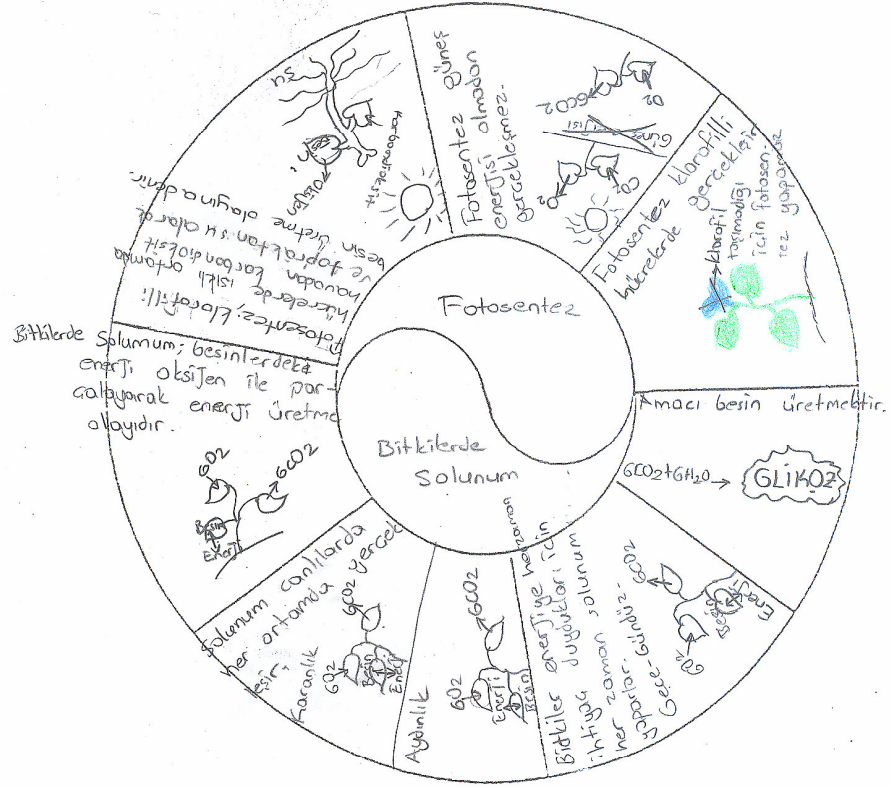 Fotosentez
Bitkilerde
Solunum
Fotosentez, klorofilli
hücrelerde ışıklı ortamda
havadan karbondioksit
ve topraktan su alarak
besin üretme olayına denir.
Su
Karbondioksit
Besin
Oksijen
Fotosentez güneş
enerjisi olmadan
gerçekleşmez.
6CO2
O2
Güneş
O2
CO2
Fotosentez klorofilli
hücrelerde gerçekleşir
klorofil
taşımadığı
için fotosen-
tez yapamaz
Amacı besin üretmektir.
6CO2+6H2O →
GLİKOZ
Bitkiler enerjiye her zaman
ihtiyaç duydukları için
her zaman solunum
yaparlar. Gece-Gündüz-
6CO2
6O2
Besin
Enerji
Aydınlık
6O2
6CO2
Enerji
Besin
Solunum canlılarda
her ortamda gerçek
leşir.
Karanlık
6O2
6CO2
Besin
Enerji
Bitkilerde Solumum; besinlerdeki
enerji oksijen ile par-
çalayarak enerji üretme
olayıdır.
6O2
6CO2
Besin
Enerji